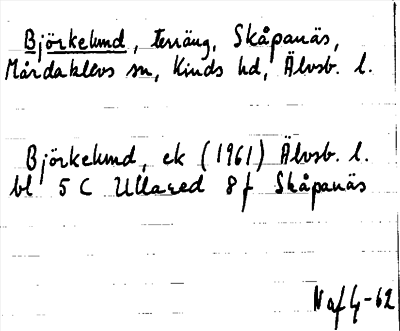 Björkelund, terräng, Skåpanäs,
Mårdaklevs sn, Kinds hd, Älvsb. l.
Björkelund, ek (1961) Älvsb. l.
bl 5 C Ullared 8 f Skåpanäs